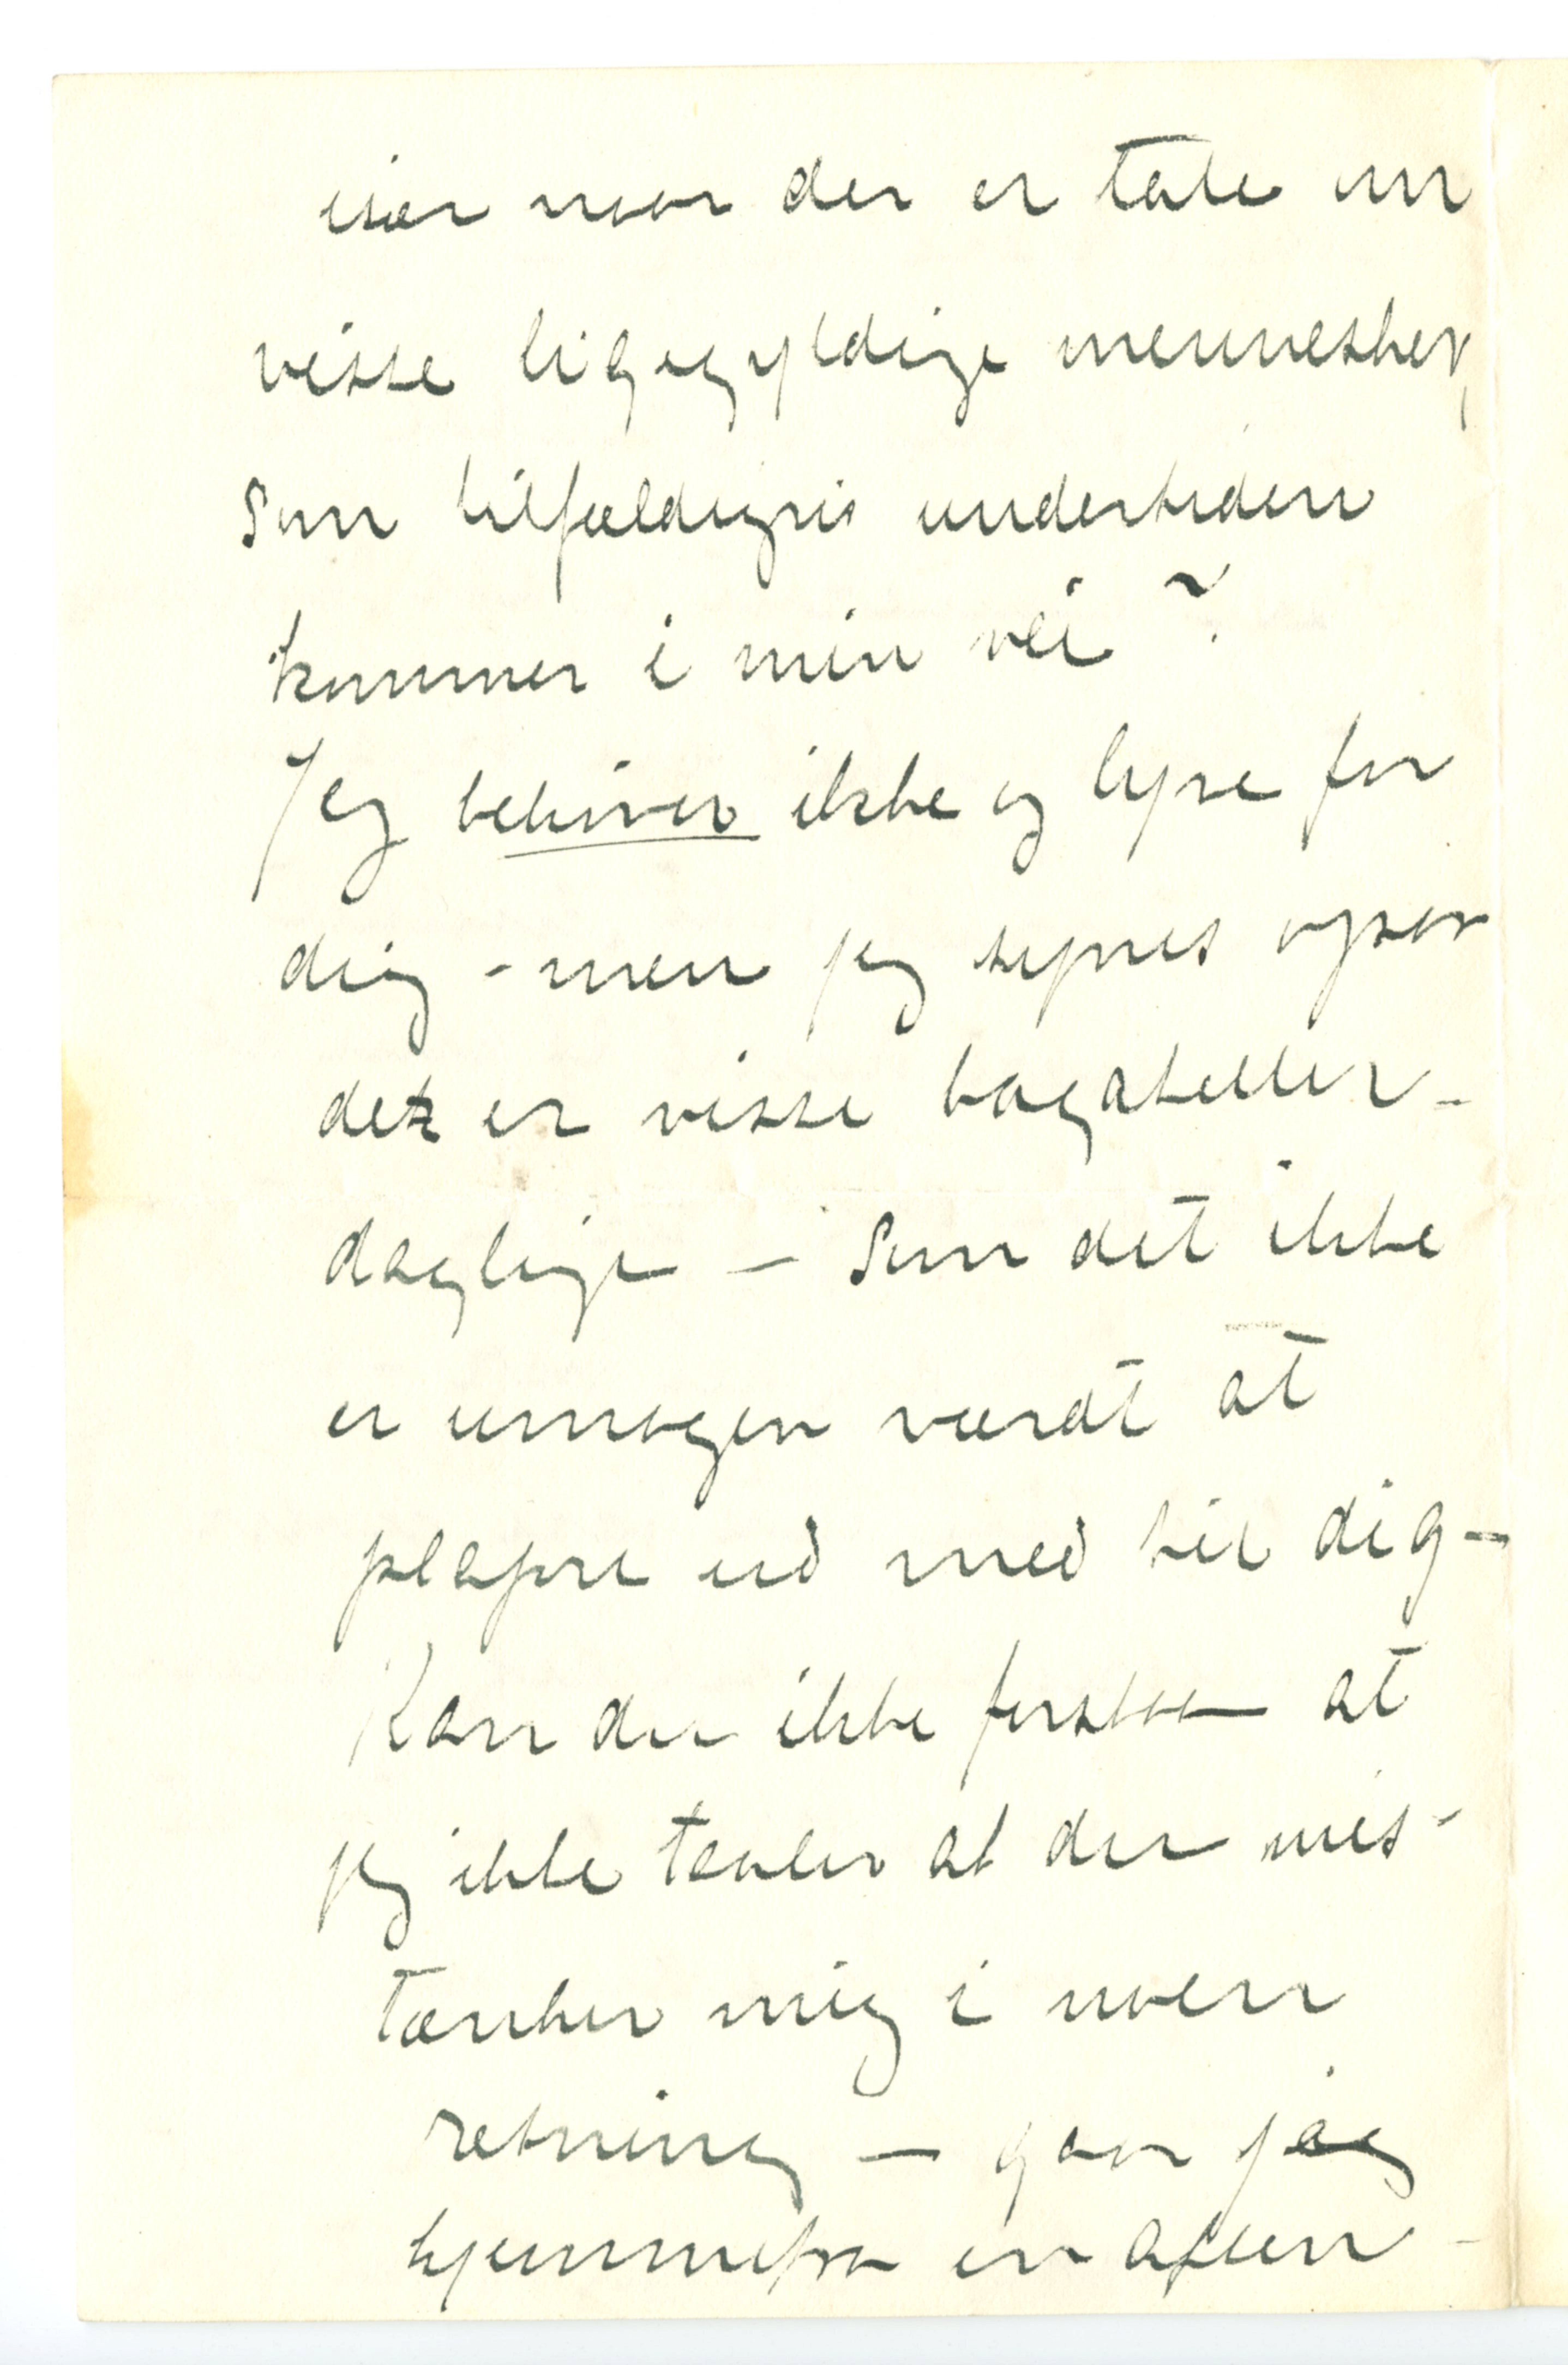 især naar der er tale om
visse ligegyldige mennesker,
som tilfældigvis undertiden
kommer i min vei?
Jeg behøver ikke og lyve for
dig - men jeg synes ogsaa
der er visse bagateller -
daglige - som det ikke
er umagen værdt at
plapre ud med til dig -
Kan du ikke forstaa at
jeg ikke taaler at du mis-
tænker mig i noen
retning - gaar jeg
hjemmefra en aften -